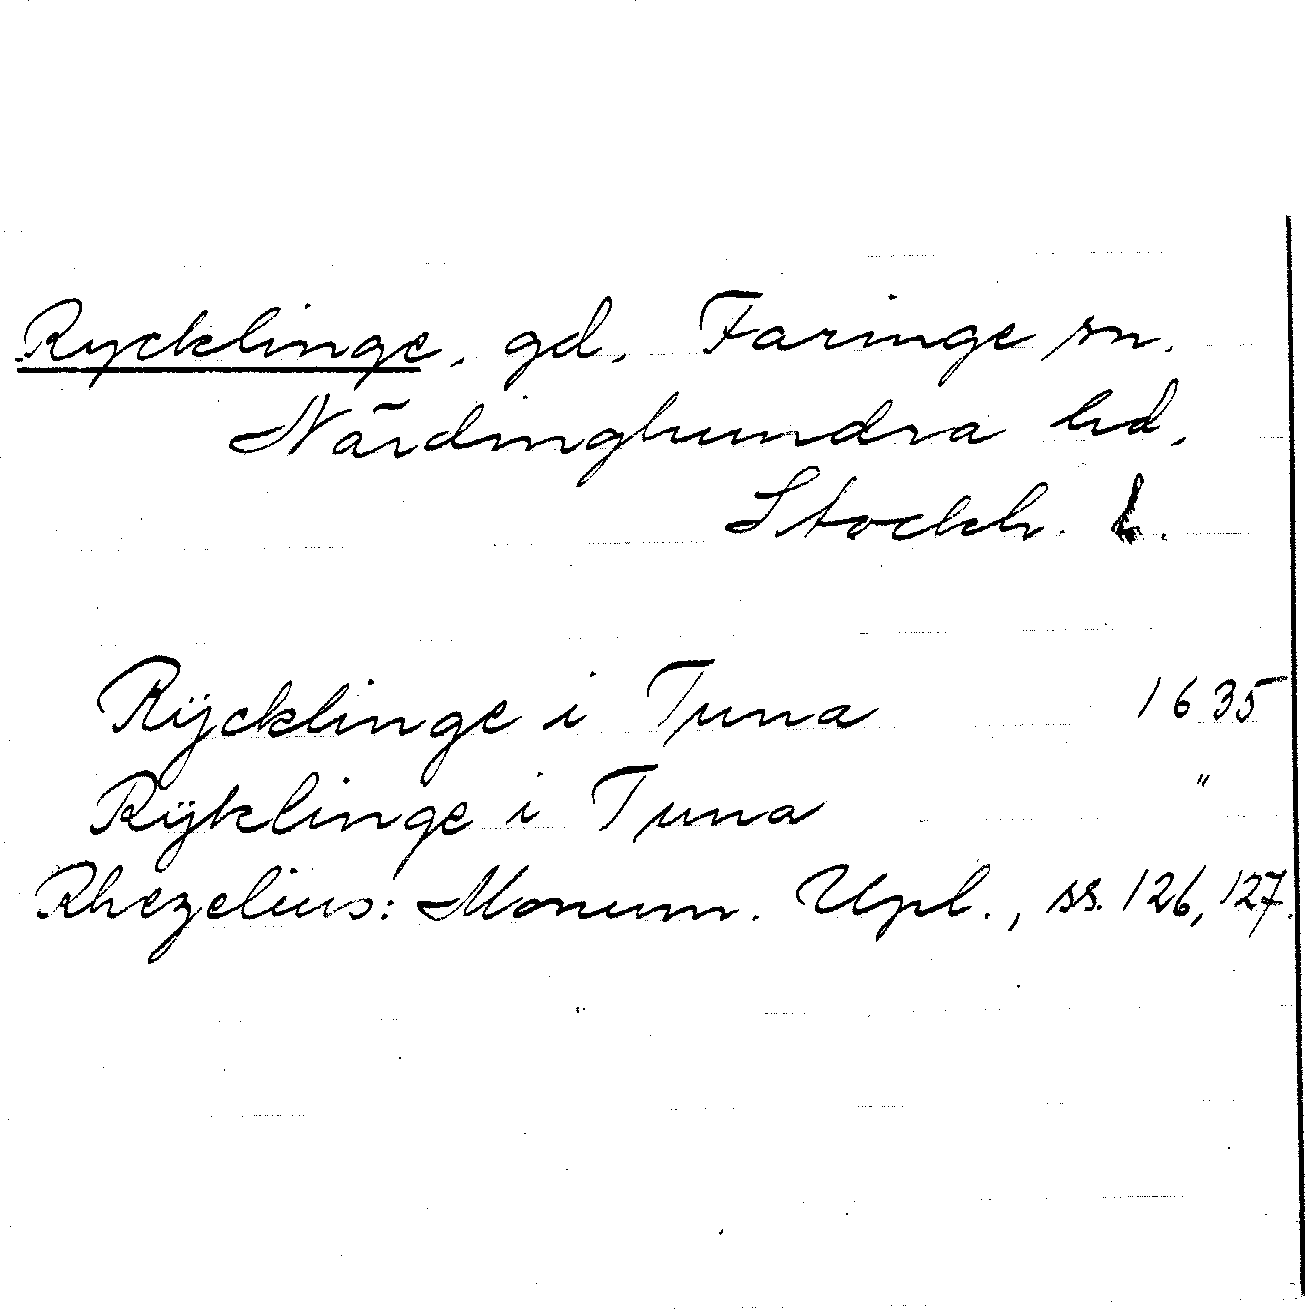 Rycklinge, gd, Faringe sn.
Närdinghundra hd,
Stockh. l.
Rÿcklinge i Tuna 1635
Rÿklinge i Tuna "
Rhezelius: Monum. Upl., ss. 126, 127.